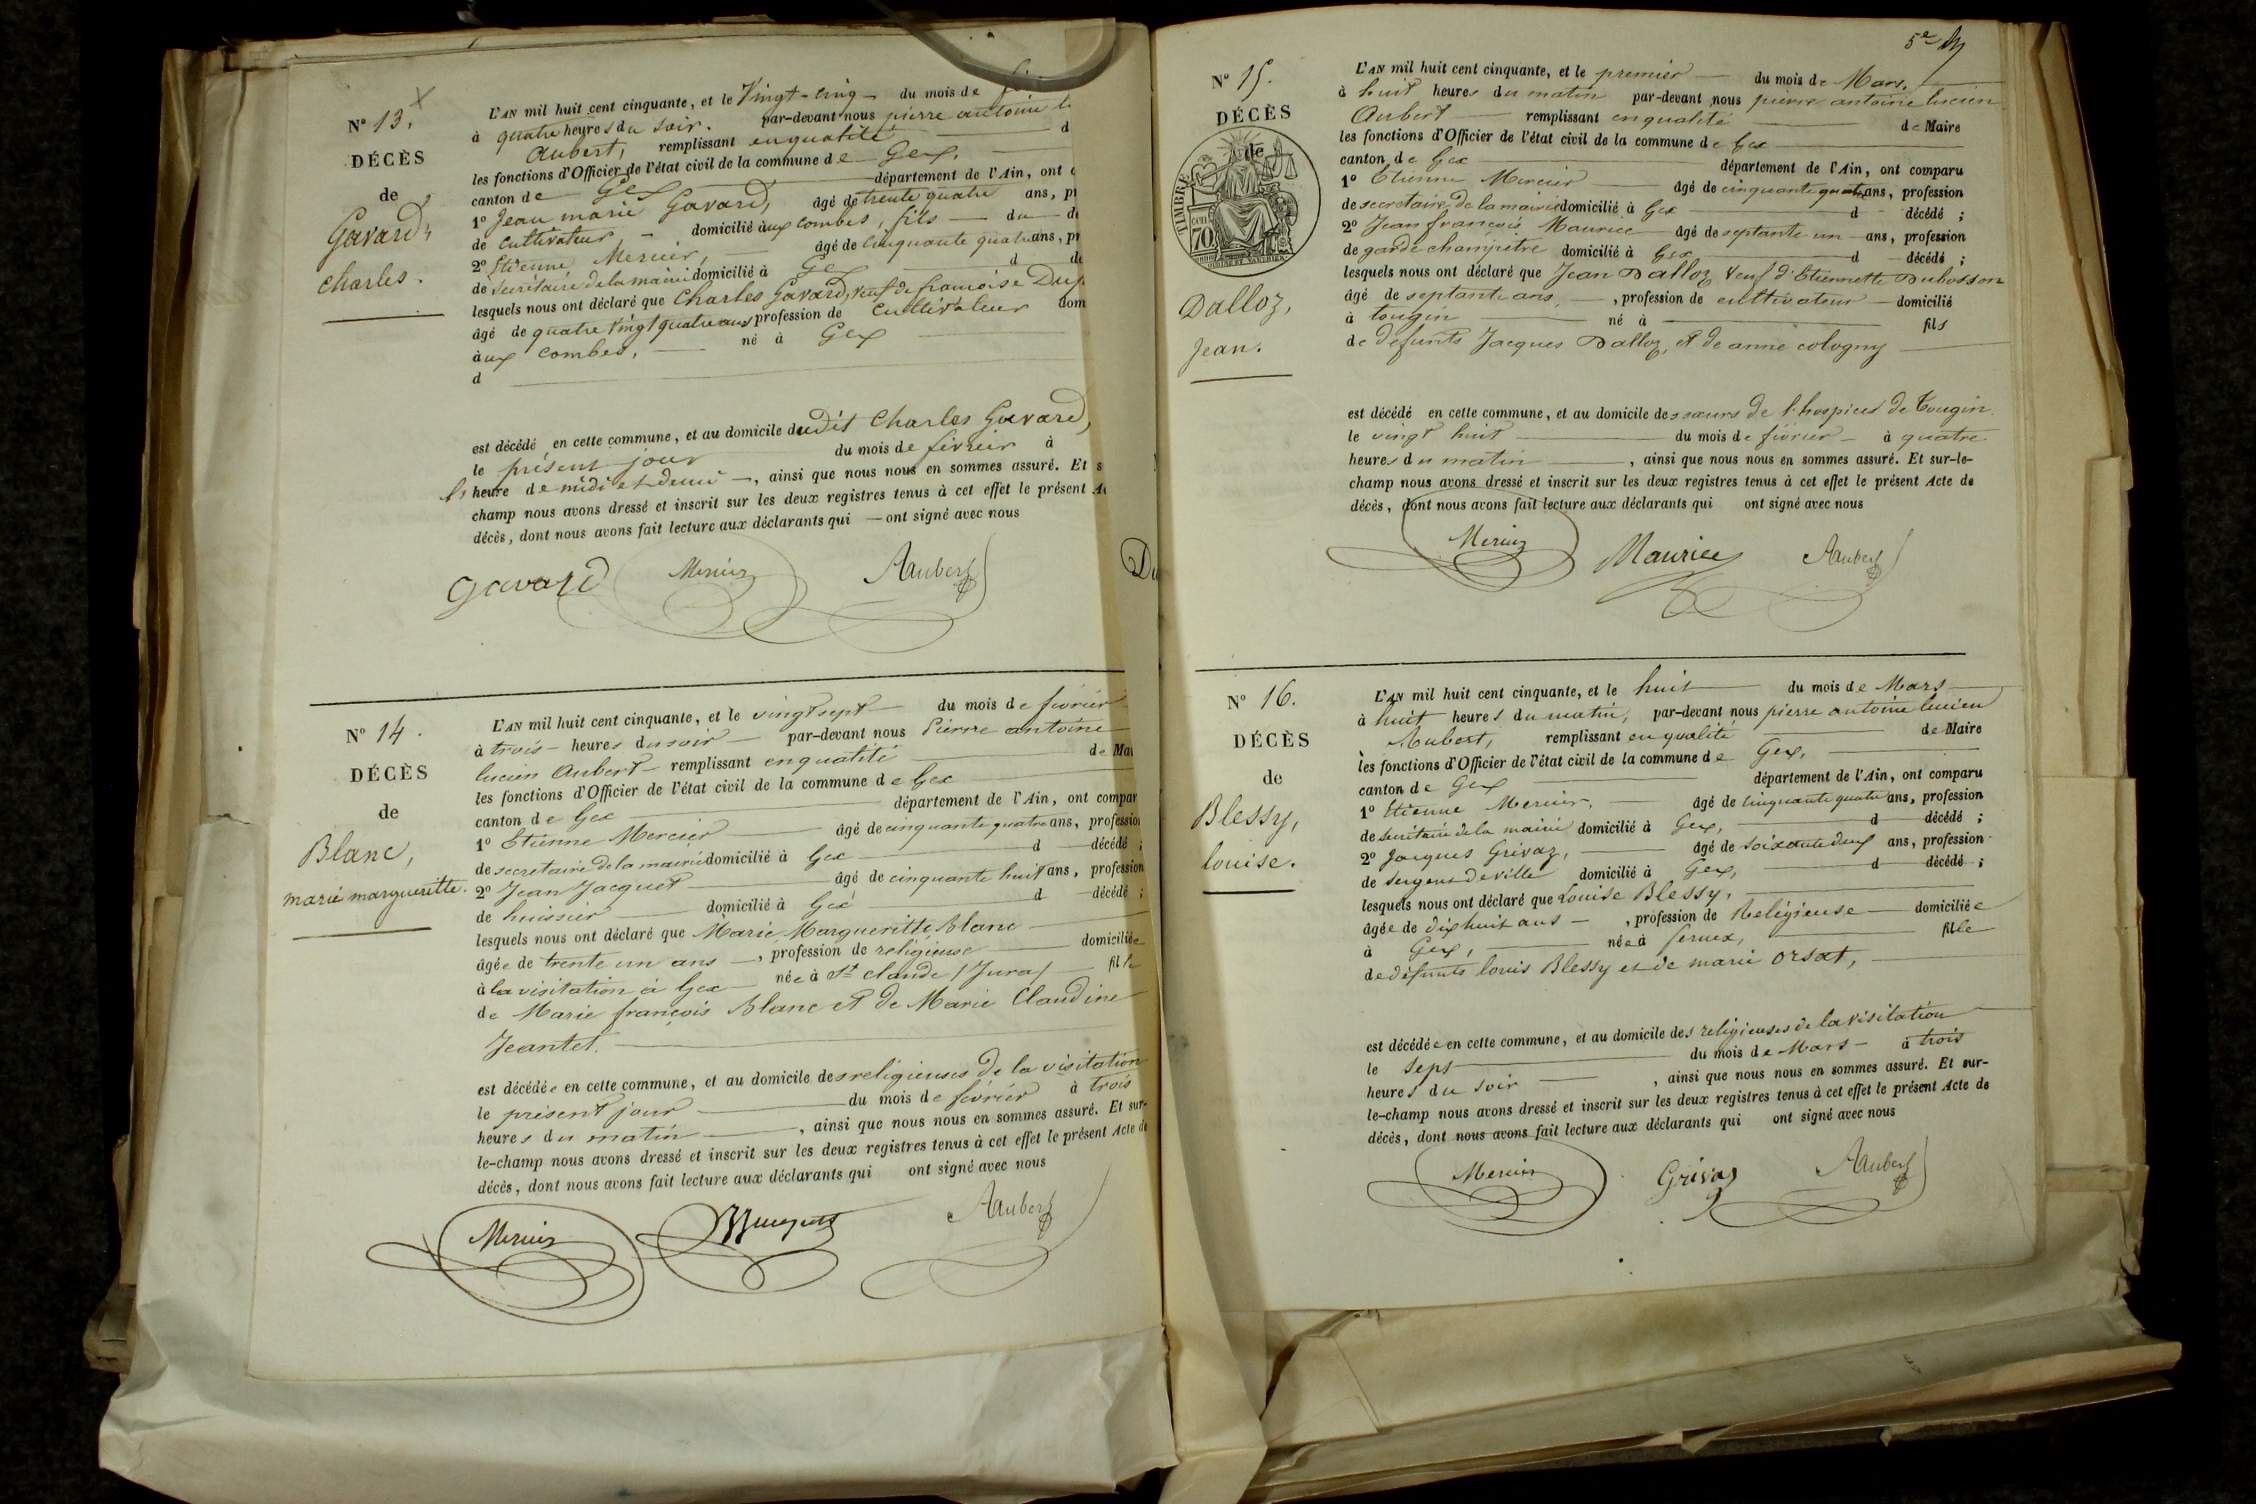 N° 13.
DÉCÈS
de
Gavard,
charles.
L'AN mil huit cent cinquante, et le Vingt-cinq du mois de
à quatre heures du soir. par-devant nous pierre antoine
Aubert, remplissant en qualité d
les fonctions d'Officier de l'état civil de la commune de Gex.
canton de Gex département de l'Ain, ont
1° Jean marie Gavard, âgé de trente quatre ans,
de cultivateur domicilié aux combes, fils du
2° Etienne Mercier, âgé de Cinquante quatre ans,
de Secrétaire de la mairie domicilié à Gex d
lesquels nous ont déclaré que Charles Gavard, veuf de francoise
âgé de quatre Vingt quatre ans profession de cultivateur
aux combes, né à Gex
d
est décédé en cette commune, et au domicile dudit Charles Gavard,
le présent jour du mois de février à
heure de midi et demi, ainsi que nous nous en sommes assuré. Et
champ nous avons dressé et inscrit sur les deux registres tenus à cet effet le présent
décès, dont nous avons fait lecture aux déclarants qui ont signé avec nous
Gavard Mercier AAubert
N° 14.
DÉCÈS
de
Blanc,
marie margueritte.
L'AN mil huit cent cinquante, et le vingt sept du mois de février
à trois heures du soir par-devant nous Pierre antoine
lucien Aubert remplissant en qualité de
les fonctions d'Officier de l'état civil de la commune de Gex
canton de Gex département de l'Ain, ont
1° Etienne Mercier âgé de cinquante quatre ans, profession
de secretaire de la mairie domicilié à Gex d décédé ;
2° Jean Jacquet âgé de cinquante huit ans, profession
de huissier domicilié à Gex d décédé ;
lesquels nous ont déclaré que Marie Margueritte Blanc
âgée de trente un ans, profession de religieuse domiciliée
à la visitation à Gex née à St claude /Jura/ fille
de Marie françois Blanc et de Marie Claudine
Jeantet.
est décédée en cette commune, et au domicile des religieuses de la visitation
le présent jour du mois de février à trois
heures du matin, ainsi que nous nous en sommes assuré. Et sur-
le-champ nous avons dressé et inscrit sur les deux registres tenus à cet effet le présent Acte de
décès, dont nous avons fait lecture aux déclarants qui ont signé avec nous
Mercier AAubert
5e
N° 15.
DÉCÈS
de
TIMBRE
70
Dalloz,
Jean.
L'AN mil huit cent cinquante, et le premier du mois de Mars.
à huit heures du matin par-devant nous pierre antoine lucien
Aubert remplissant en qualité de Maire
les fonctions d'Officier de l'état civil de la commune de Gex
canton de Gex département de l'Ain, ont comparu
1° Etienne Mercier âgé de cinquante quatre ans, profession
de secretaire de la mairie domicilié à Gex d décédé ;
2° Jean françois Maurice âgé de septante un ans, profession
de garde champêtre domicilié à Gex d décédé ;
lesquels nous ont déclaré que Jean Dalloz veuf d'Etiennette Dubosson
âgé de septante ans, profession de cultivateur domicilié
à tougin né à fils
de défunts Jacques Dalloz, et de anne cologny
est décédé en cette commune, et au domicile des sœurs de l'hospice de Tougin
le vingt huit du mois de février à quatre
heures du matin, ainsi que nous nous en sommes assuré. Et sur-le-
champ nous avons dressé et inscrit sur les deux registres tenus à cet effet le présent Acte de
décès, dont nous avons fait lecture aux déclarants qui ont signé avec nous
Mercier Maurice AAubert
N° 16.
DÉCÈS
de
Blessy,
louise.
L'AN mil huit cent cinquante, et le huit du mois de Mars
à huit heures du matin, par-devant nous pierre antoine lucien
Aubert, remplissant en qualité de Maire
les fonctions d'Officier de l'état civil de la commune de Gex,
canton de Gex département de l'Ain, ont comparu
1° Etienne Mercier, âgé de Cinquante quatre ans, profession
de secrétaire de la mairie domicilié à Gex, d décédé ;
2° Jacques Grivaz, âgé de soixante deux ans, profession
de Sergent de ville domicilié à Gex, d décédé ;
lesquels nous ont déclaré que Louise Blessy,
âgée de dix huit ans, profession de Religieuse domiciliée
à Gex, née à fernex, fille
de défunts louis Blessy et de marie orsat,
est décédée en cette commune, et au domicile des religieuses de la visitation
le Sept du mois de Mars à trois
heures du soir, ainsi que nous nous en sommes assuré. Et sur-
le-champ nous avons dressé et inscrit sur les deux registres tenus à cet effet le présent Acte de
décès, dont nous avons fait lecture aux déclarants qui ont signé avec nous
Mercier Grivaz AAubert